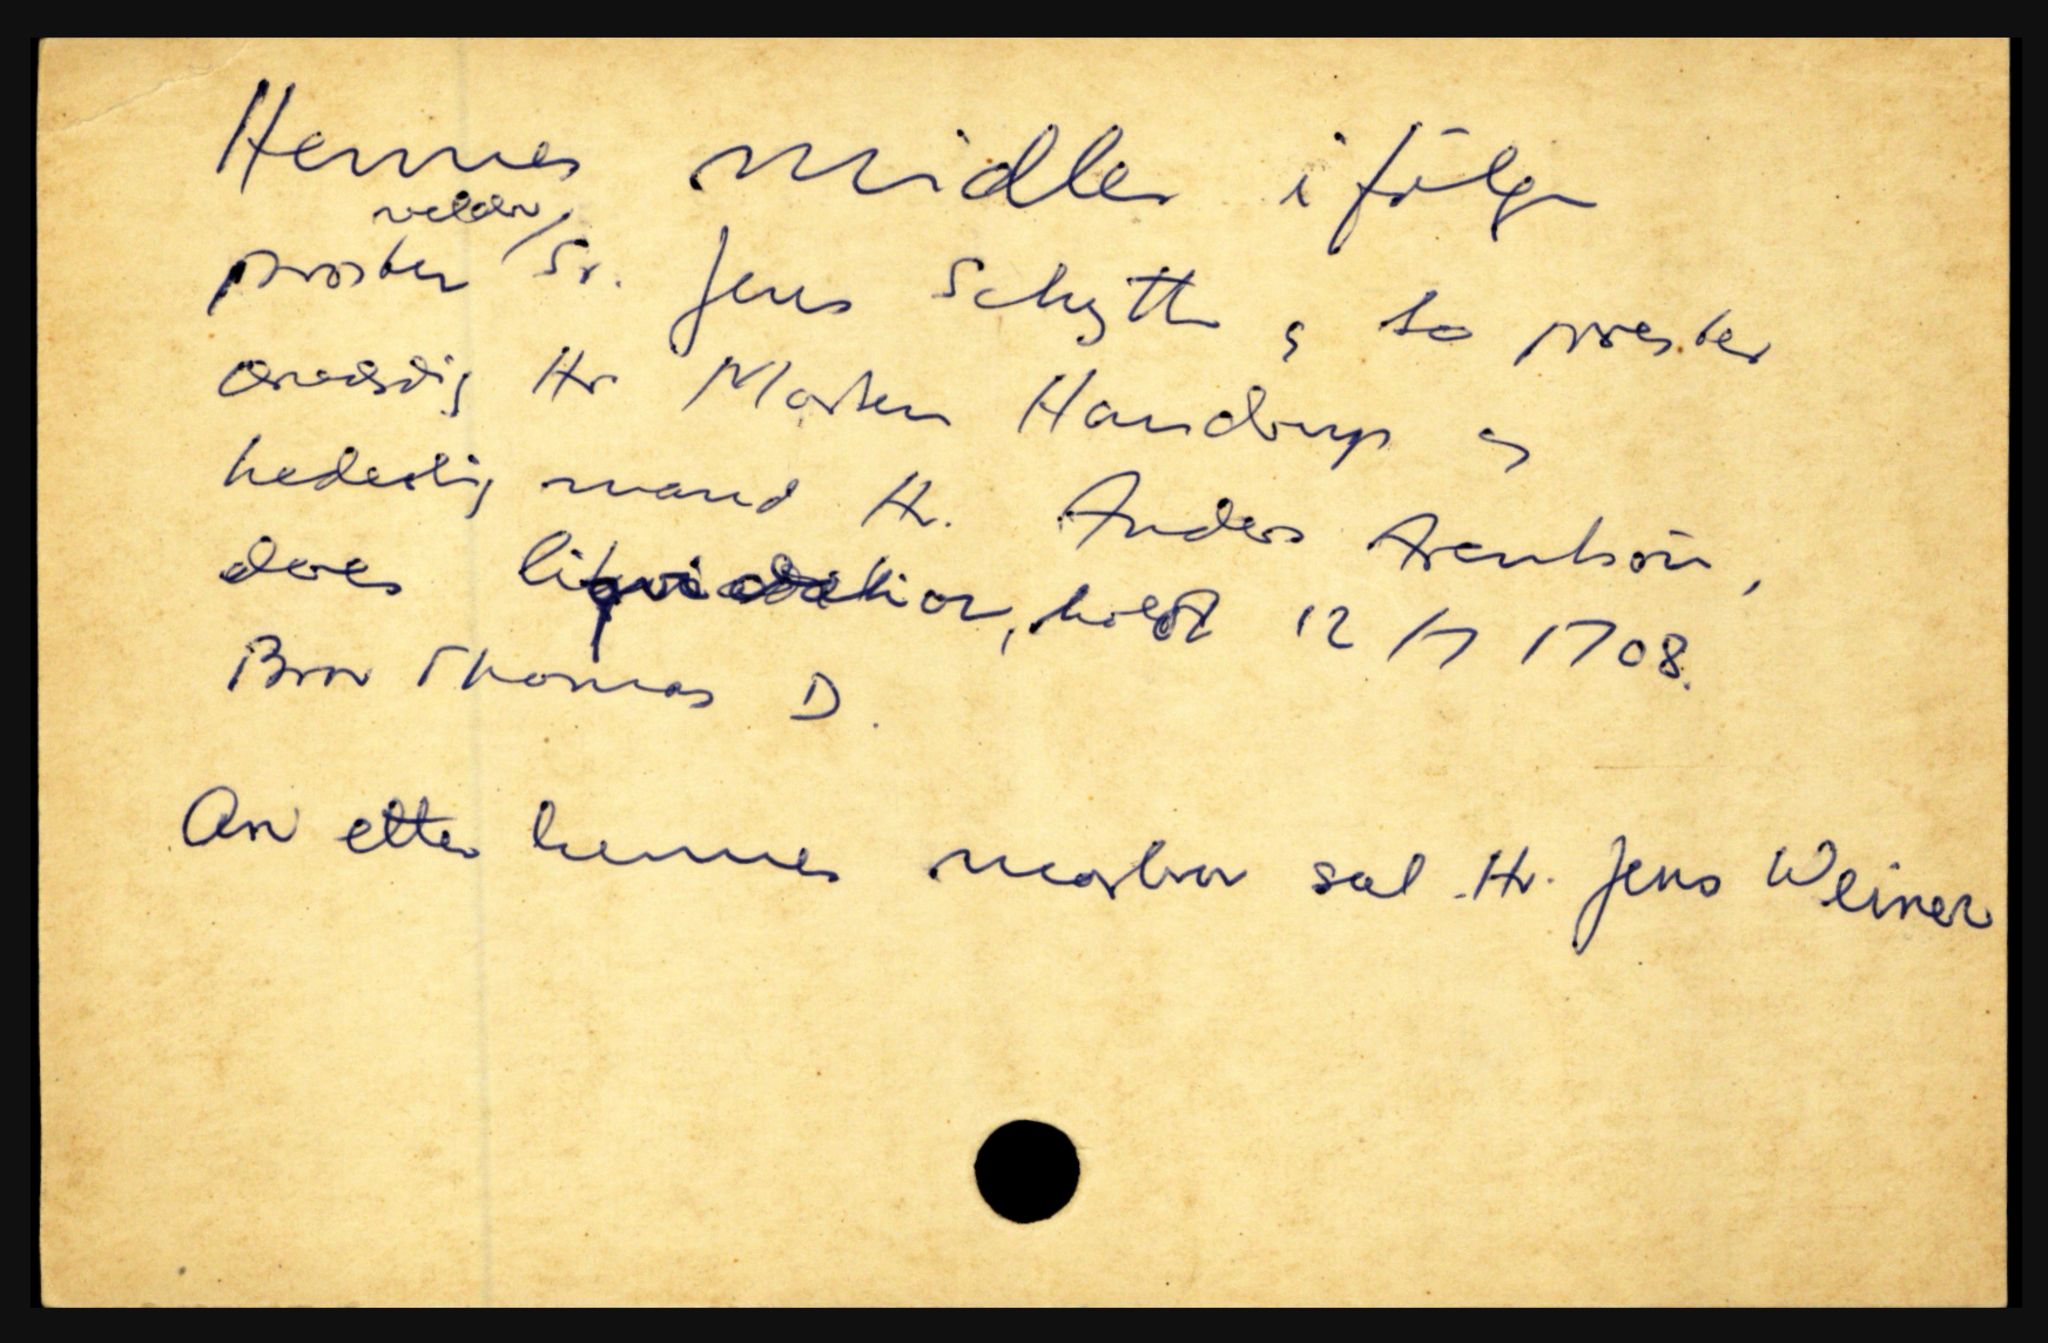 Hennes midler ifølge
prosten velærv/ Sr. Jens Schytte, og to prester
ærværdig Hr Morten Handrup og
hederlig mand Hr. Anders Arentsøn,
deres likvidation, holdt 12/7 1708.
Bror Thomas D.
Arv etter hennes morbror sal. Hr. Jens Weiner